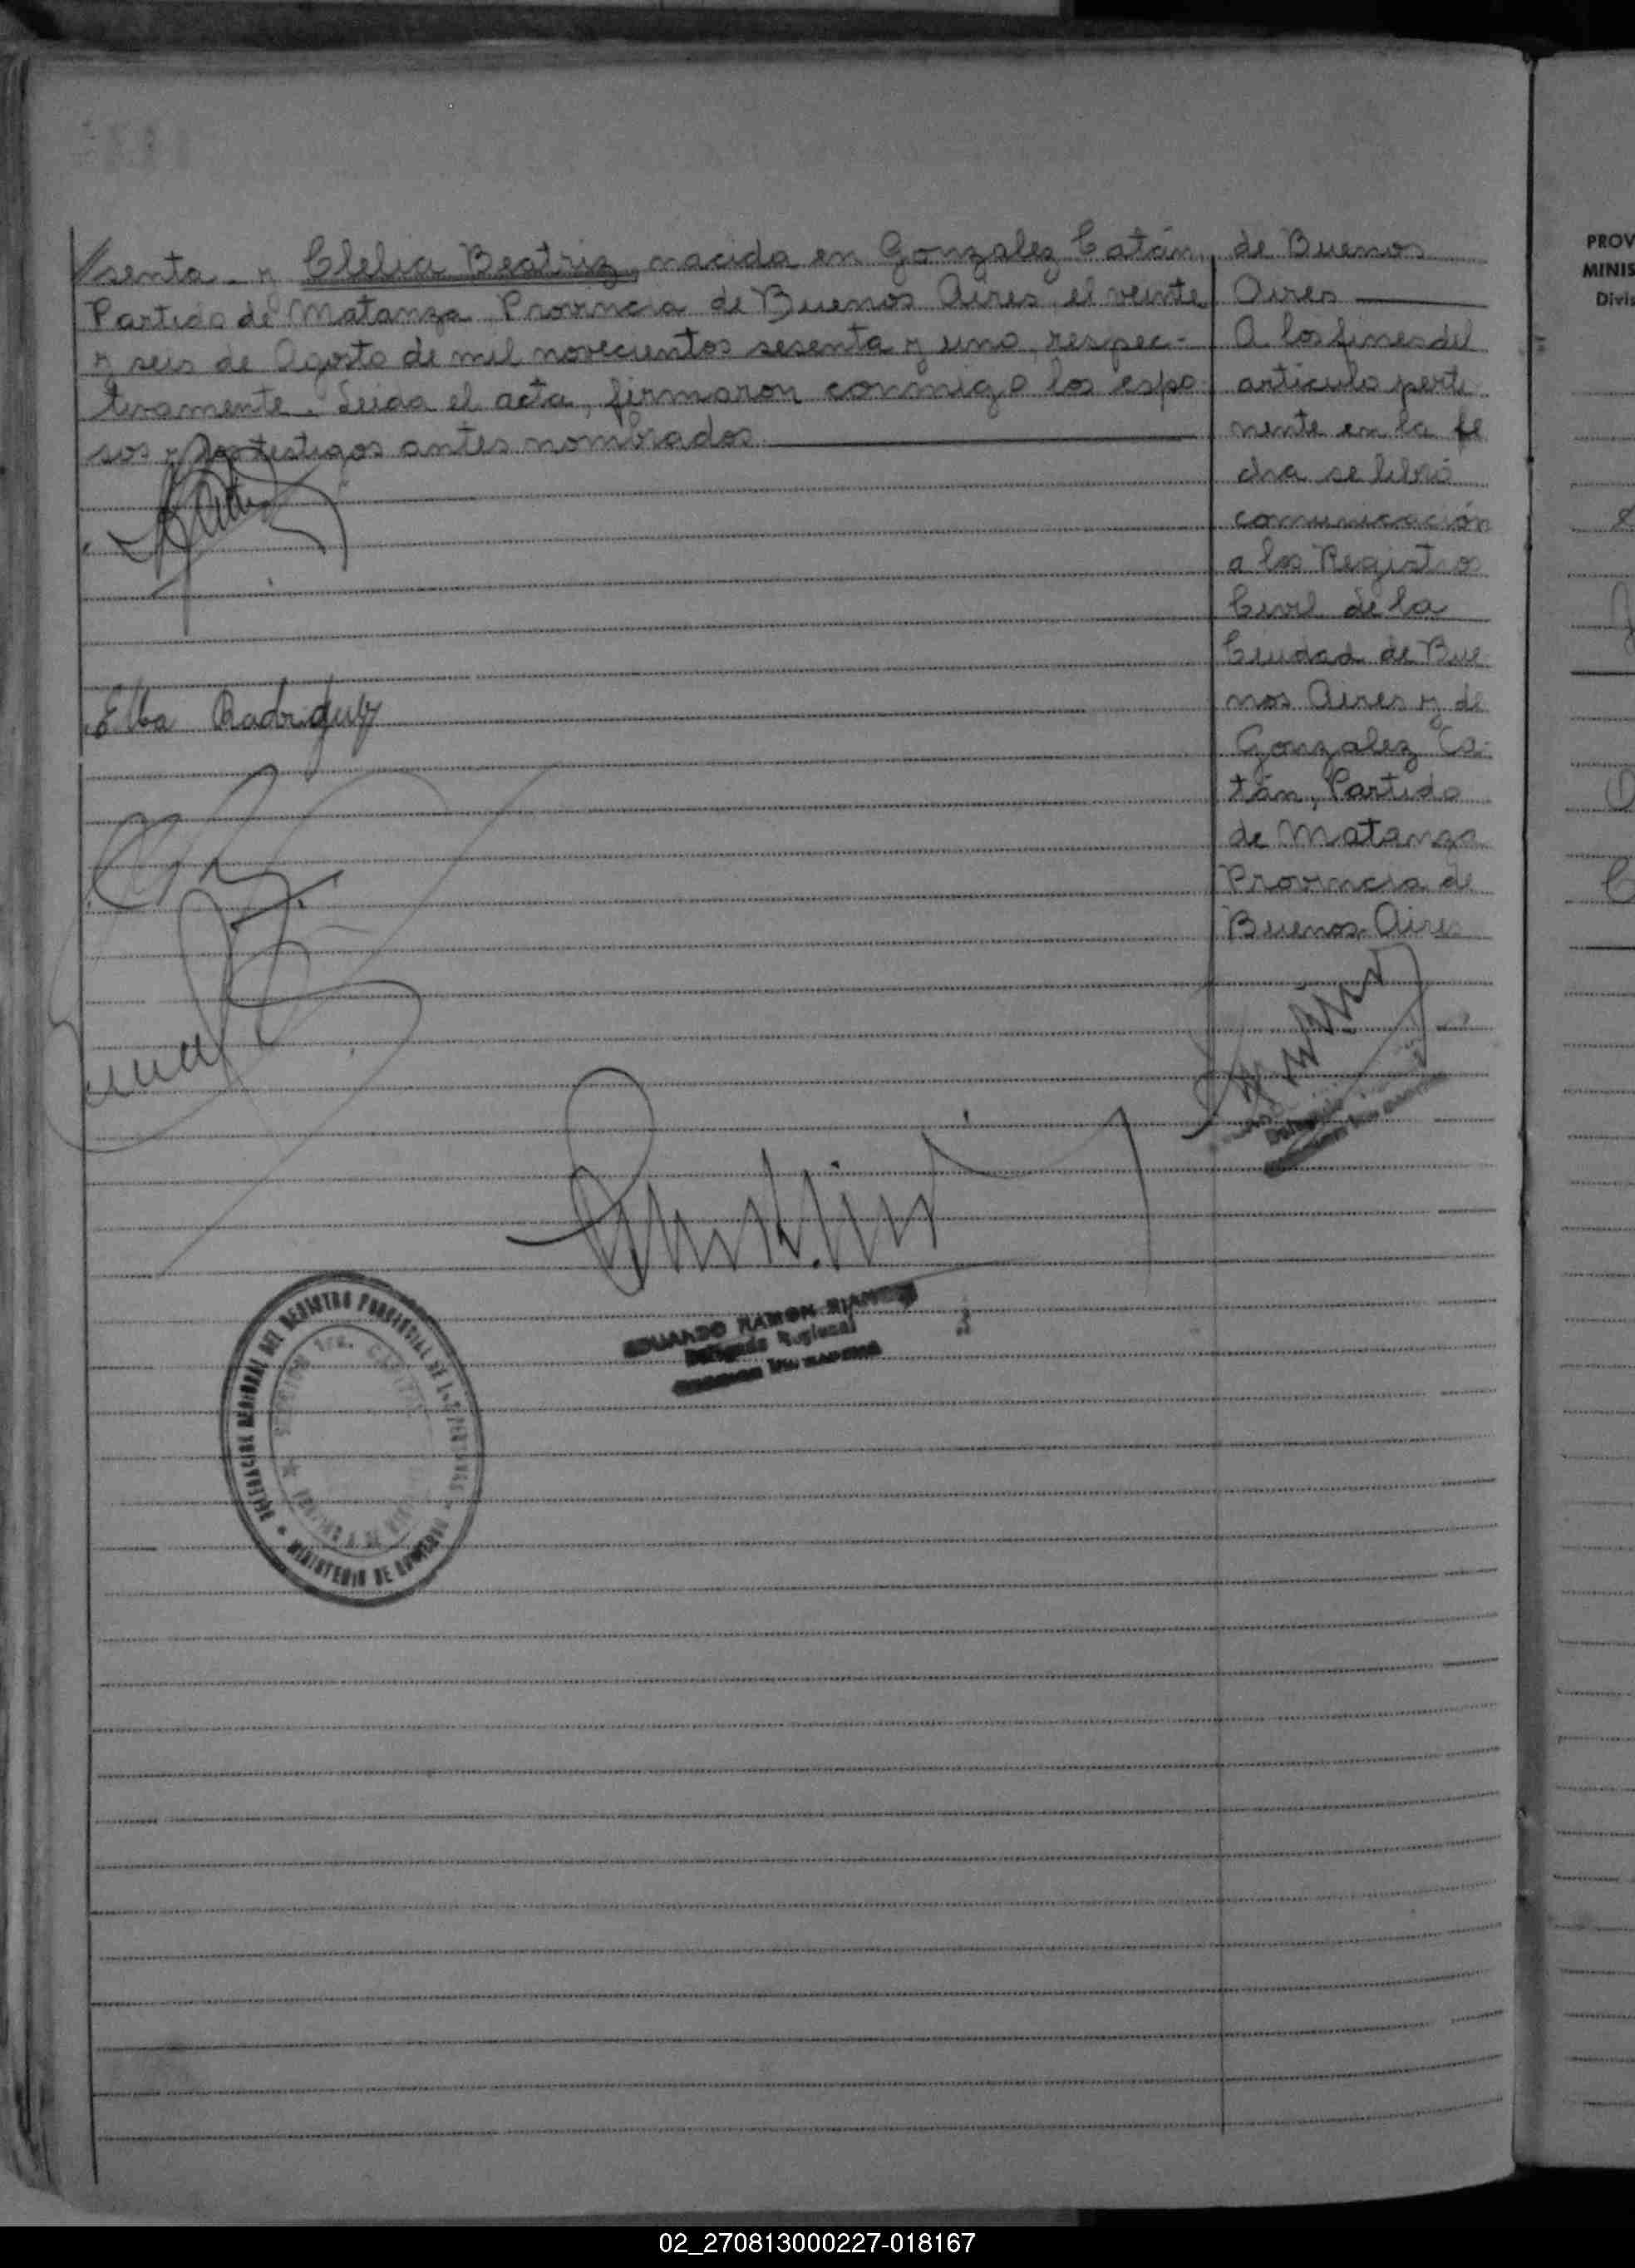 //senta. y Clelia Beatriz, nacida en Gonzalez Catán,
Partido de Matanza Provincia de Buenos Aires, el veinte
y seis de Agosto de mil novecientos sesenta y uno, respec-
tivamente. Leida el acta, firmaron conmigo los espo-
sos y los testigos antes nombrados.
de Buenos
Aires
A los fines del
articulo perti
nente en la fe
cha se libró
comunicación
a los Registros
Civil de la
Ciudad de Bue
nos Aires y de
Gonzalez Ca-
tán, Partido
de Matanza
Provincia de
Buenos Aires
Elba Rodriguez
EDUARDO RAMON
Delegado Regional
Delegado
REGIONAL DEL REGISTRO PROVINCIAL DE LAS PERSONAS
MINISTERIO DE GOBIERNO
PROV
MINIS
Divis
02_270813000227-018167